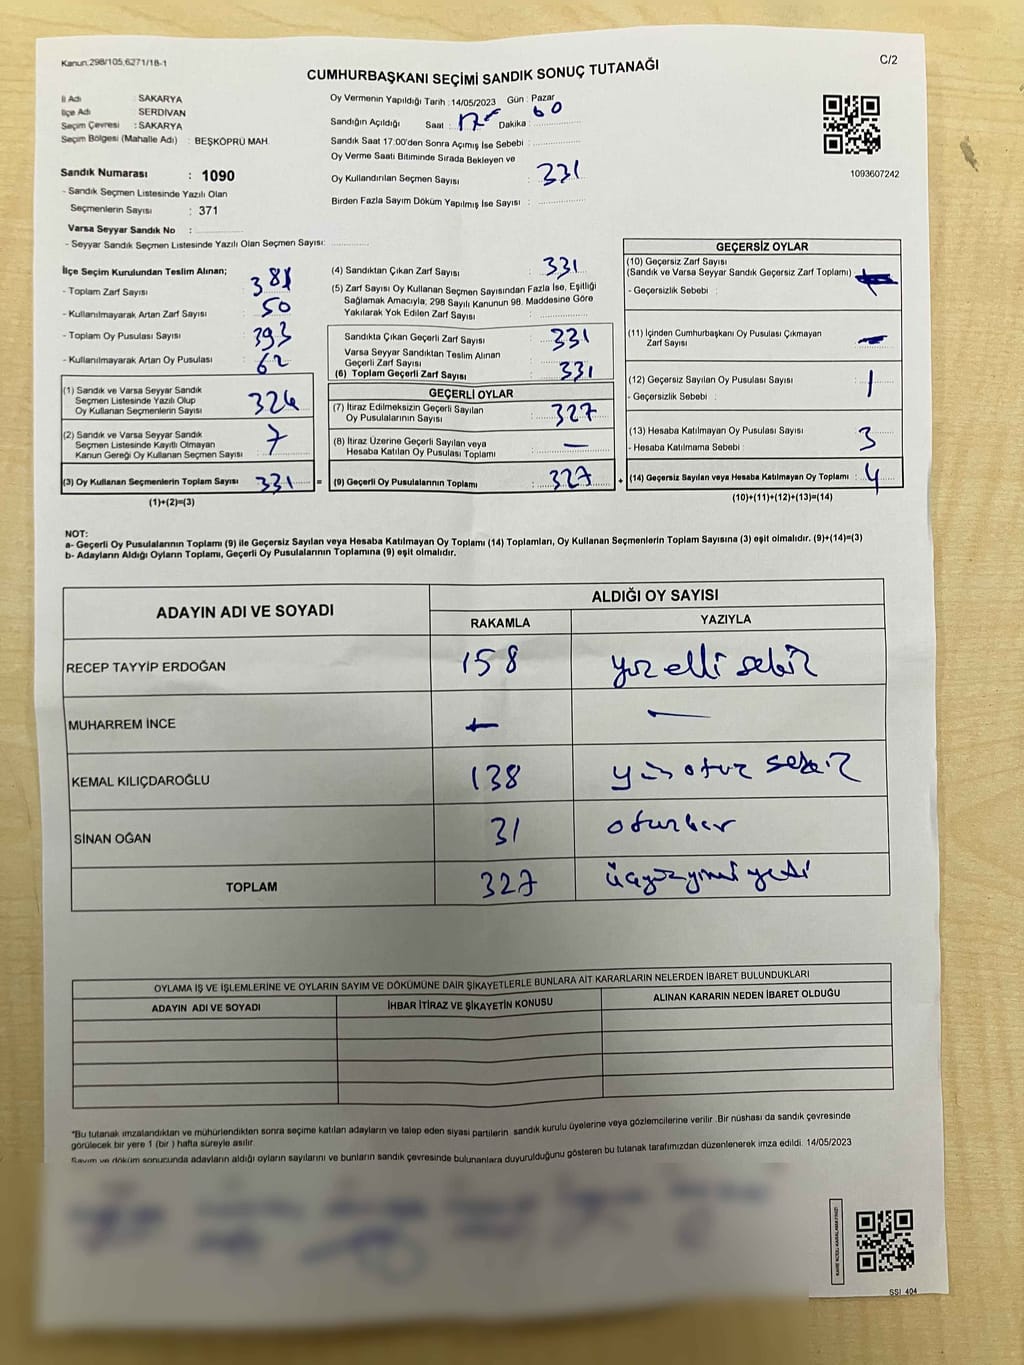 Kanun:298/105,6271/18-1
C/2
CUMHURBAŞKANI SEÇİMİ SANDIK SONUÇ TUTANAĞI
İl Adı : SAKARYA
İlçe Adı : SERDİVAN
Seçim Çevresi : SAKARYA
Seçim Bölgesi (Mahalle Adı) : BEŞKÖPRÜ MAH.
Sandık Numarası : 1090
- Sandık Seçmen Listesinde Yazılı Olan
Seçmenlerin Sayısı : 371
Varsa Seyyar Sandık No :
- Seyyar Sandık Seçmen Listesinde Yazılı Olan Seçmen Sayısı:
Oy Vermenin Yapıldığı Tarih : 14/05/2023 Gün : Pazar
Sandığın Açıldığı Saat : 17 Dakika :
Sandık Saat 17:00'den Sonra Açımış İse Sebebi :
Oy Verme Saati Bitiminde Sırada Bekleyen ve
Oy Kullandırılan Seçmen Sayısı : 331
Birden Fazla Sayım Döküm Yapılmış İse Sayısı :
1093607242
İlçe Seçim Kurulundan Teslim Alınan;
- Toplam Zarf Sayısı : 381
- Kullanılmayarak Artan Zarf Sayısı : 50
- Toplam Oy Pusulası Sayısı : 393
- Kullanılmayarak Artan Oy Pusulası : 62
(1) Sandık ve Varsa Seyyar Sandık
Seçmen Listesinde Yazılı Olup
Oy Kullanan Seçmenlerin Sayısı : 324
(2) Sandık ve Varsa Seyyar Sandık
Seçmen Listesinde Kayıtlı Olmayan
Kanun Gereği Oy Kullanan Seçmen Sayısı : 7
(3) Oy Kullanan Seçmenlerin Toplam Sayısı : 331 =
(1)+(2)=(3)
(4) Sandıktan Çıkan Zarf Sayısı : 331
(5) Zarf Sayısı Oy Kullanan Seçmen Sayısından Fazla İse, Eşitliği
Sağlamak Amacıyla, 298 Sayılı Kanunun 98. Maddesine Göre
Yakılarak Yok Edilen Zarf Sayısı :
Sandıkta Çıkan Geçerli Zarf Sayısı : 331
Varsa Seyyar Sandıktan Teslim Alınan
Geçerli Zarf Sayısı :
(6) Toplam Geçerli Zarf Sayısı : 331
GEÇERLİ OYLAR
(7) İtiraz Edilmeksizin Geçerli Sayılan
Oy Pusulalarının Sayısı : 327
(8) İtiraz Üzerine Geçerli Sayılan veya
Hesaba Katılan Oy Pusulası Toplamı : —
(9) Geçerli Oy Pusulalarının Toplamı : 327 +
GEÇERSİZ OYLAR
(10) Geçersiz Zarf Sayısı
(Sandık ve Varsa Seyyar Sandık Geçersiz Zarf Toplamı) :
- Geçersizlik Sebebi :
(11) İçinden Cumhurbaşkanı Oy Pusulası Çıkmayan
Zarf Sayısı : —
(12) Geçersiz Sayılan Oy Pusulası Sayısı : 1
- Geçersizlik Sebebi :
(13) Hesaba Katılmayan Oy Pusulası Sayısı : 3
- Hesaba Katılmama Sebebi :
(14) Geçersiz Sayılan veya Hesaba Katılmayan Oy Toplamı : 4
(10)+(11)+(12)+(13)=(14)
NOT:
a- Geçerli Oy Pusulalarının Toplamı (9) ile Geçersiz Sayılan veya Hesaba Katılmayan Oy Toplamı (14) Toplamları, Oy Kullanan Seçmenlerin Toplam Sayısına (3) eşit olmalıdır. (9)+(14)=(3)
b- Adayların Aldığı Oyların Toplamı, Geçerli Oy Pusulalarının Toplamına (9) eşit olmalıdır.
ADAYIN ADI VE SOYADI
ALDIĞI OY SAYISI
RAKAMLA YAZIYLA
RECEP TAYYİP ERDOĞAN 158 yüz elli sekiz
MUHARREM İNCE — —
KEMAL KILIÇDAROĞLU 138 yüz otuz sekiz
SİNAN OĞAN 31 otuzbir
TOPLAM 327 üçyüzyirmi yedi
OYLAMA İŞ VE İŞLEMLERİNE VE OYLARIN SAYIM VE DÖKÜMÜNE DAİR ŞİKAYETLERLE BUNLARA AİT KARARLARIN NELERDEN İBARET BULUNDUKLARI
ADAYIN ADI VE SOYADI İHBAR İTİRAZ VE ŞİKAYETİN KONUSU ALINAN KARARIN NEDEN İBARET OLDUĞU
*Bu tutanak imzalandıktan ve mühürlendikten sonra seçime katılan adayların ve talep eden siyasi partilerin sandık kurulu üyelerine veya gözlemcilerine verilir .Bir nüshası da sandık çevresinde
görülecek bir yere 1 (bir ) hafta süreyle asılır.
Sayım ve döküm sonucunda adayların aldığı oyların sayılarını ve bunların sandık çevresinde bulunanlara duyurulduğunu gösteren bu tutanak tarafımızdan düzenlenerek imza edildi. 14/05/2023
SSI 404